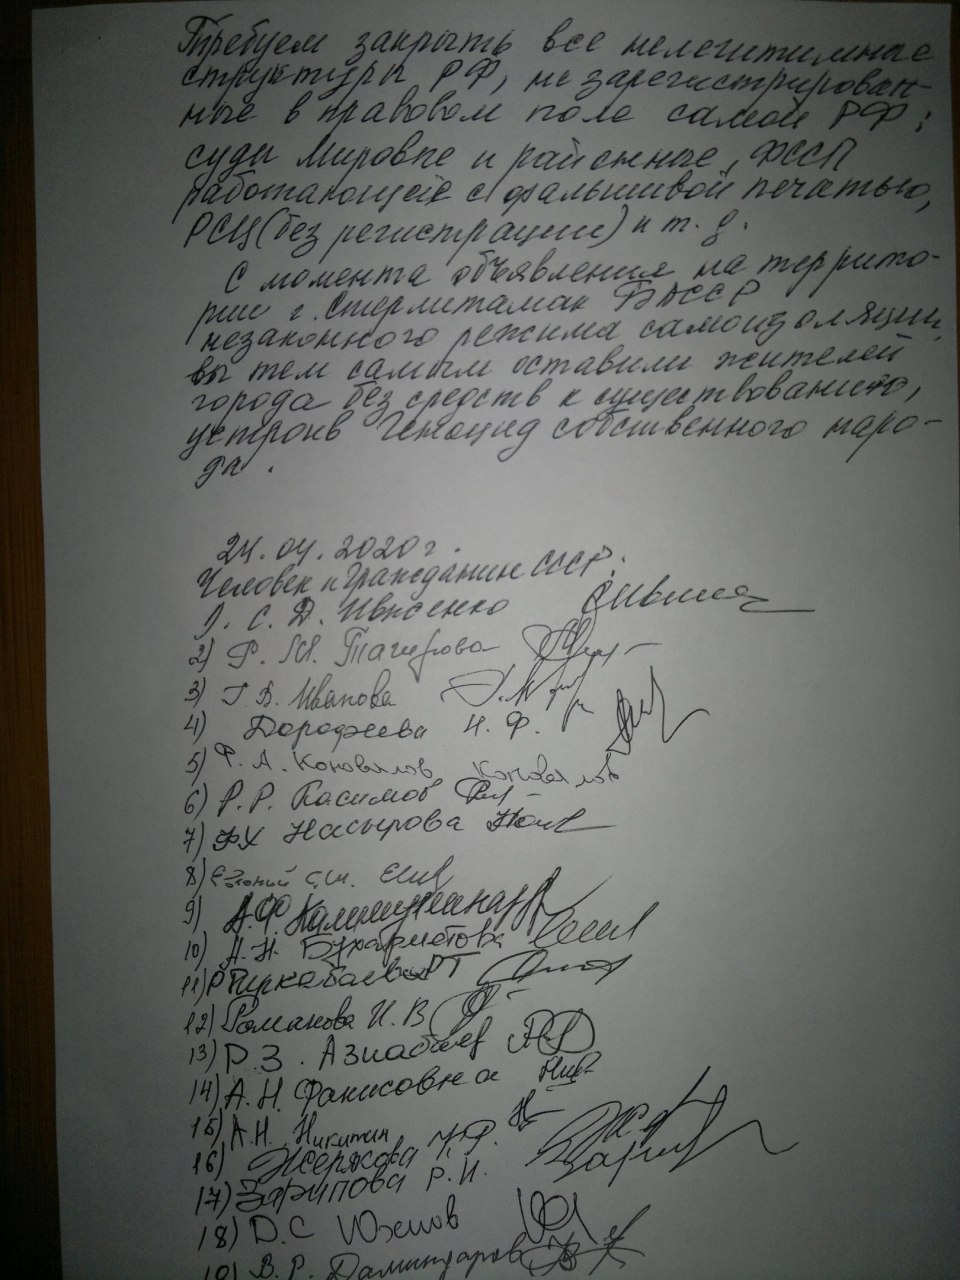 Требуем закрыть все нелегитимные
структуры РФ, не зарегистрирован-
ные в правовом поле самой РФ;
суды мировые и районные, ФССП
работающей с фальшивой печатью,
РСЦ (без регистрации) и т. д.
С момента объявления на террито-
рии г. Стерлитамак БАССР
незаконного режима самоизоляции,
вы тем самым оставили жителей
города без средств к существованию,
устроив Геноцид собственного наро-
да.
24.04.2020 г.
Человек и Гражданин СССР:
1. С. Д. Ивасенко
2) Р. М. Тагирова
3) Г. В. Иванова
4) Дорофеева Н. Ф.
5) Ф. А. Коновалов Коновалов
6) Р. Р. Касимов
7) ФХ Насырова
8) С.Ш.
9) А.Ф.
10) А. Н. Бухарметова
11) РТ
12) Романова И. В
13) Р. З. Азнабаев
14) А. Н. Фанисовна
15) А.Н. Никитин
16) Жернова Ч. Р.
17) Зарипова Р. И.
18) Д. С Юзеов
19) В. Р. Даминдаров